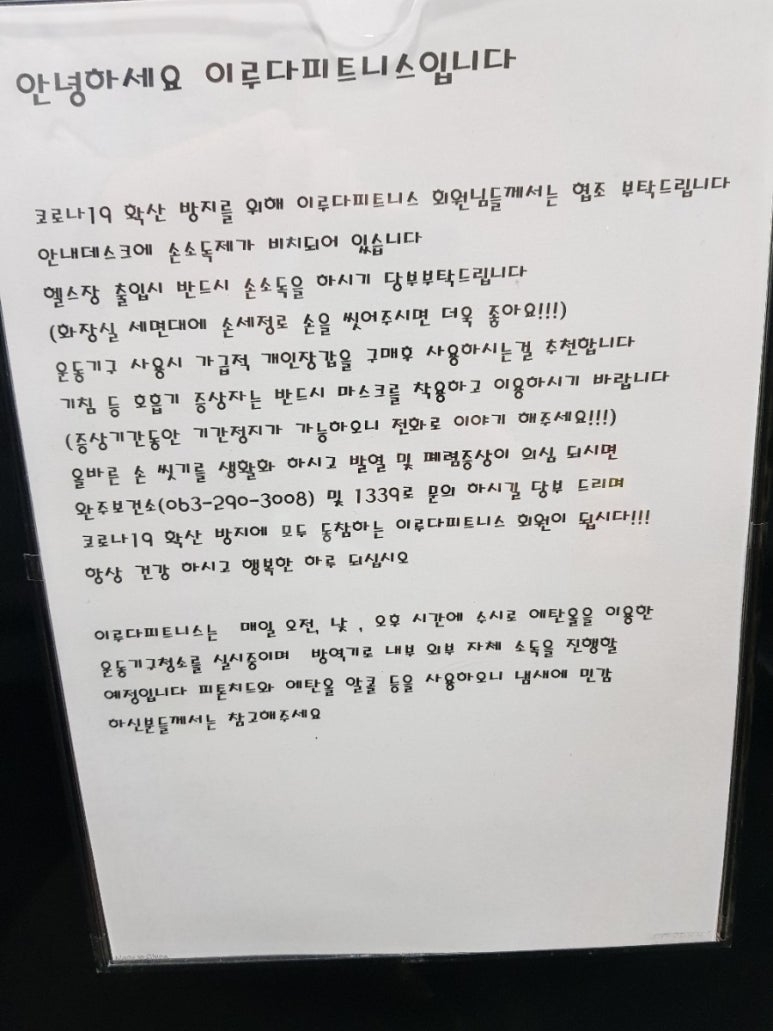 안녕하세요 이루다피트니스입니다
코로나19 확산 방지를 위해 이루다피트니스 회원님들께서는 협조 부탁드립니다
안내데스크에 손소독제가 비치되어 있습니다
헬스장 출입시 반드시 손소독을 하시기 당부부탁드립니다
(화장실 세면대에 손세정로 손을 씻어주시면 더욱 좋아요!!!)
운동기구 사용시 가급적 개인장갑을 구매후 사용하시는걸 추천합니다
기침 등 호흡기 증상자는 반드시 마스크를 착용하고 이용하시기 바랍니다
(증상기간동안 기간정지가 가능하오니 전화로 이야기 해주세요!!!)
올바른 손 씻기를 생활화 하시고 발열 및 폐렴증상이 의심 되시면
완주보건소(063-290-3008) 및 1339로 문의 하시길 당부 드리며
코로나19 확산 방지에 모두 동참하는 이루다피트니스 회원이 됩시다!!!
항상 건강 하시고 행복한 하루 되십시오
이루다피트니스는 매일 오전, 낮 , 오후 시간에 수시로 에탄올을 이용한
운동기구청소를 실시중이며 방역기로 내부 외부 자체 소독을 진행할
예정입니다 피톤치드와 에탄올 알콜 등을 사용하오니 냄새에 민감
하신분들께서는 참고해주세요